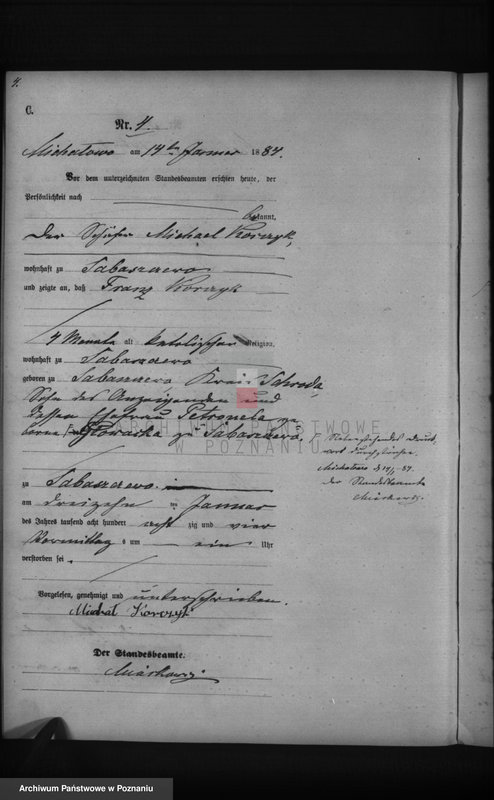 4.
C.
Nr. 4.
Michałowo am 14ten Januar 1884.
Vor dem unterzeichneten Standesbeamten erschien heute, der
Persönlichkeit nach
bekannt,
der Schäfer Michael Korczyk,
wohnhaft zu Sabaszczewo
und zeigte an, daß Franz Korczyk
4 Monate alt katolischer Religion,
wohnhaft zu Sabaszczewo
geboren zu Sabaszczewo Kreis Schroda,
Sohn des Anzeigenden und
dessen Ehefrau Petronela ge
borene zu Sabaszczewo,
ARCHIWUM PAŃSTWOWE
W POZNANIU
zu Sabaszczewo
am dreizehn ten Januar
des Jahres tausend acht hundert acht zig und vier
Vormittag s um ein Uhr
verstorben sei.
Vorgelesen, genehmigt und unterschrieben.
Michał Korczyk
Der Standesbeamte.
Vorstehendes Druck
wort durchstrichen.
Michałowo d 14/1. 84.
der Standesbeamte
Archiwum Państwowe w Poznaniu